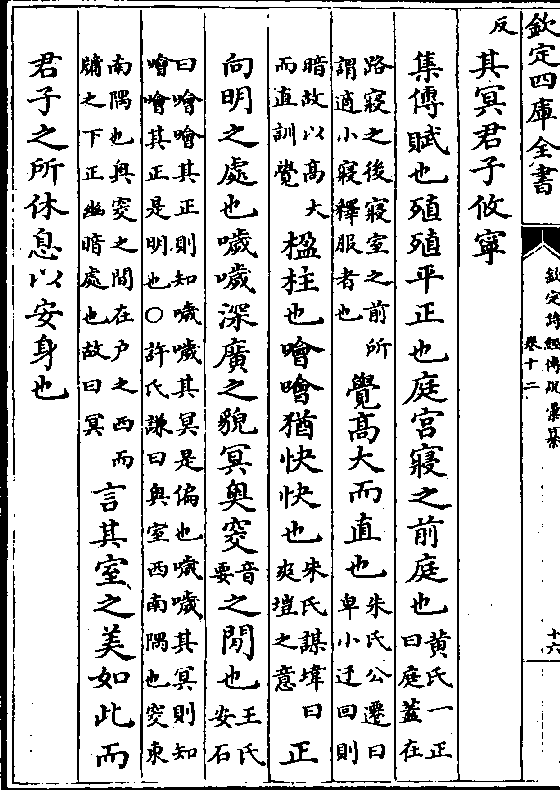 欽定四庫全書
欽定詩經傳說彙纂
卷十二
十六
反其冥君子攸寧
集傳賦也殖殖平正也庭宮寢之前庭也黃氏一正曰庭蓋在
路寢之後寢室之前所謂適小寢釋服者也覺高大而直也朱氏公遷曰卑小迂回則
暗故以高大而直訓覺楹柱也噲噲猶快快也朱氏謀㙔曰爽塏之意正
向明之處也噦噦深廣之貌冥奧窔音要之間也王氏安石
曰噲噲其正則知噦噦其冥是偏也噦噦其冥則知噲噲其正是明也○許氏謙曰奧室西南隅也窔東
南隅也奧窔之間在戶之西而牖之下正幽暗處也故曰冥言其室之美如此而
君子之所休息以安身也